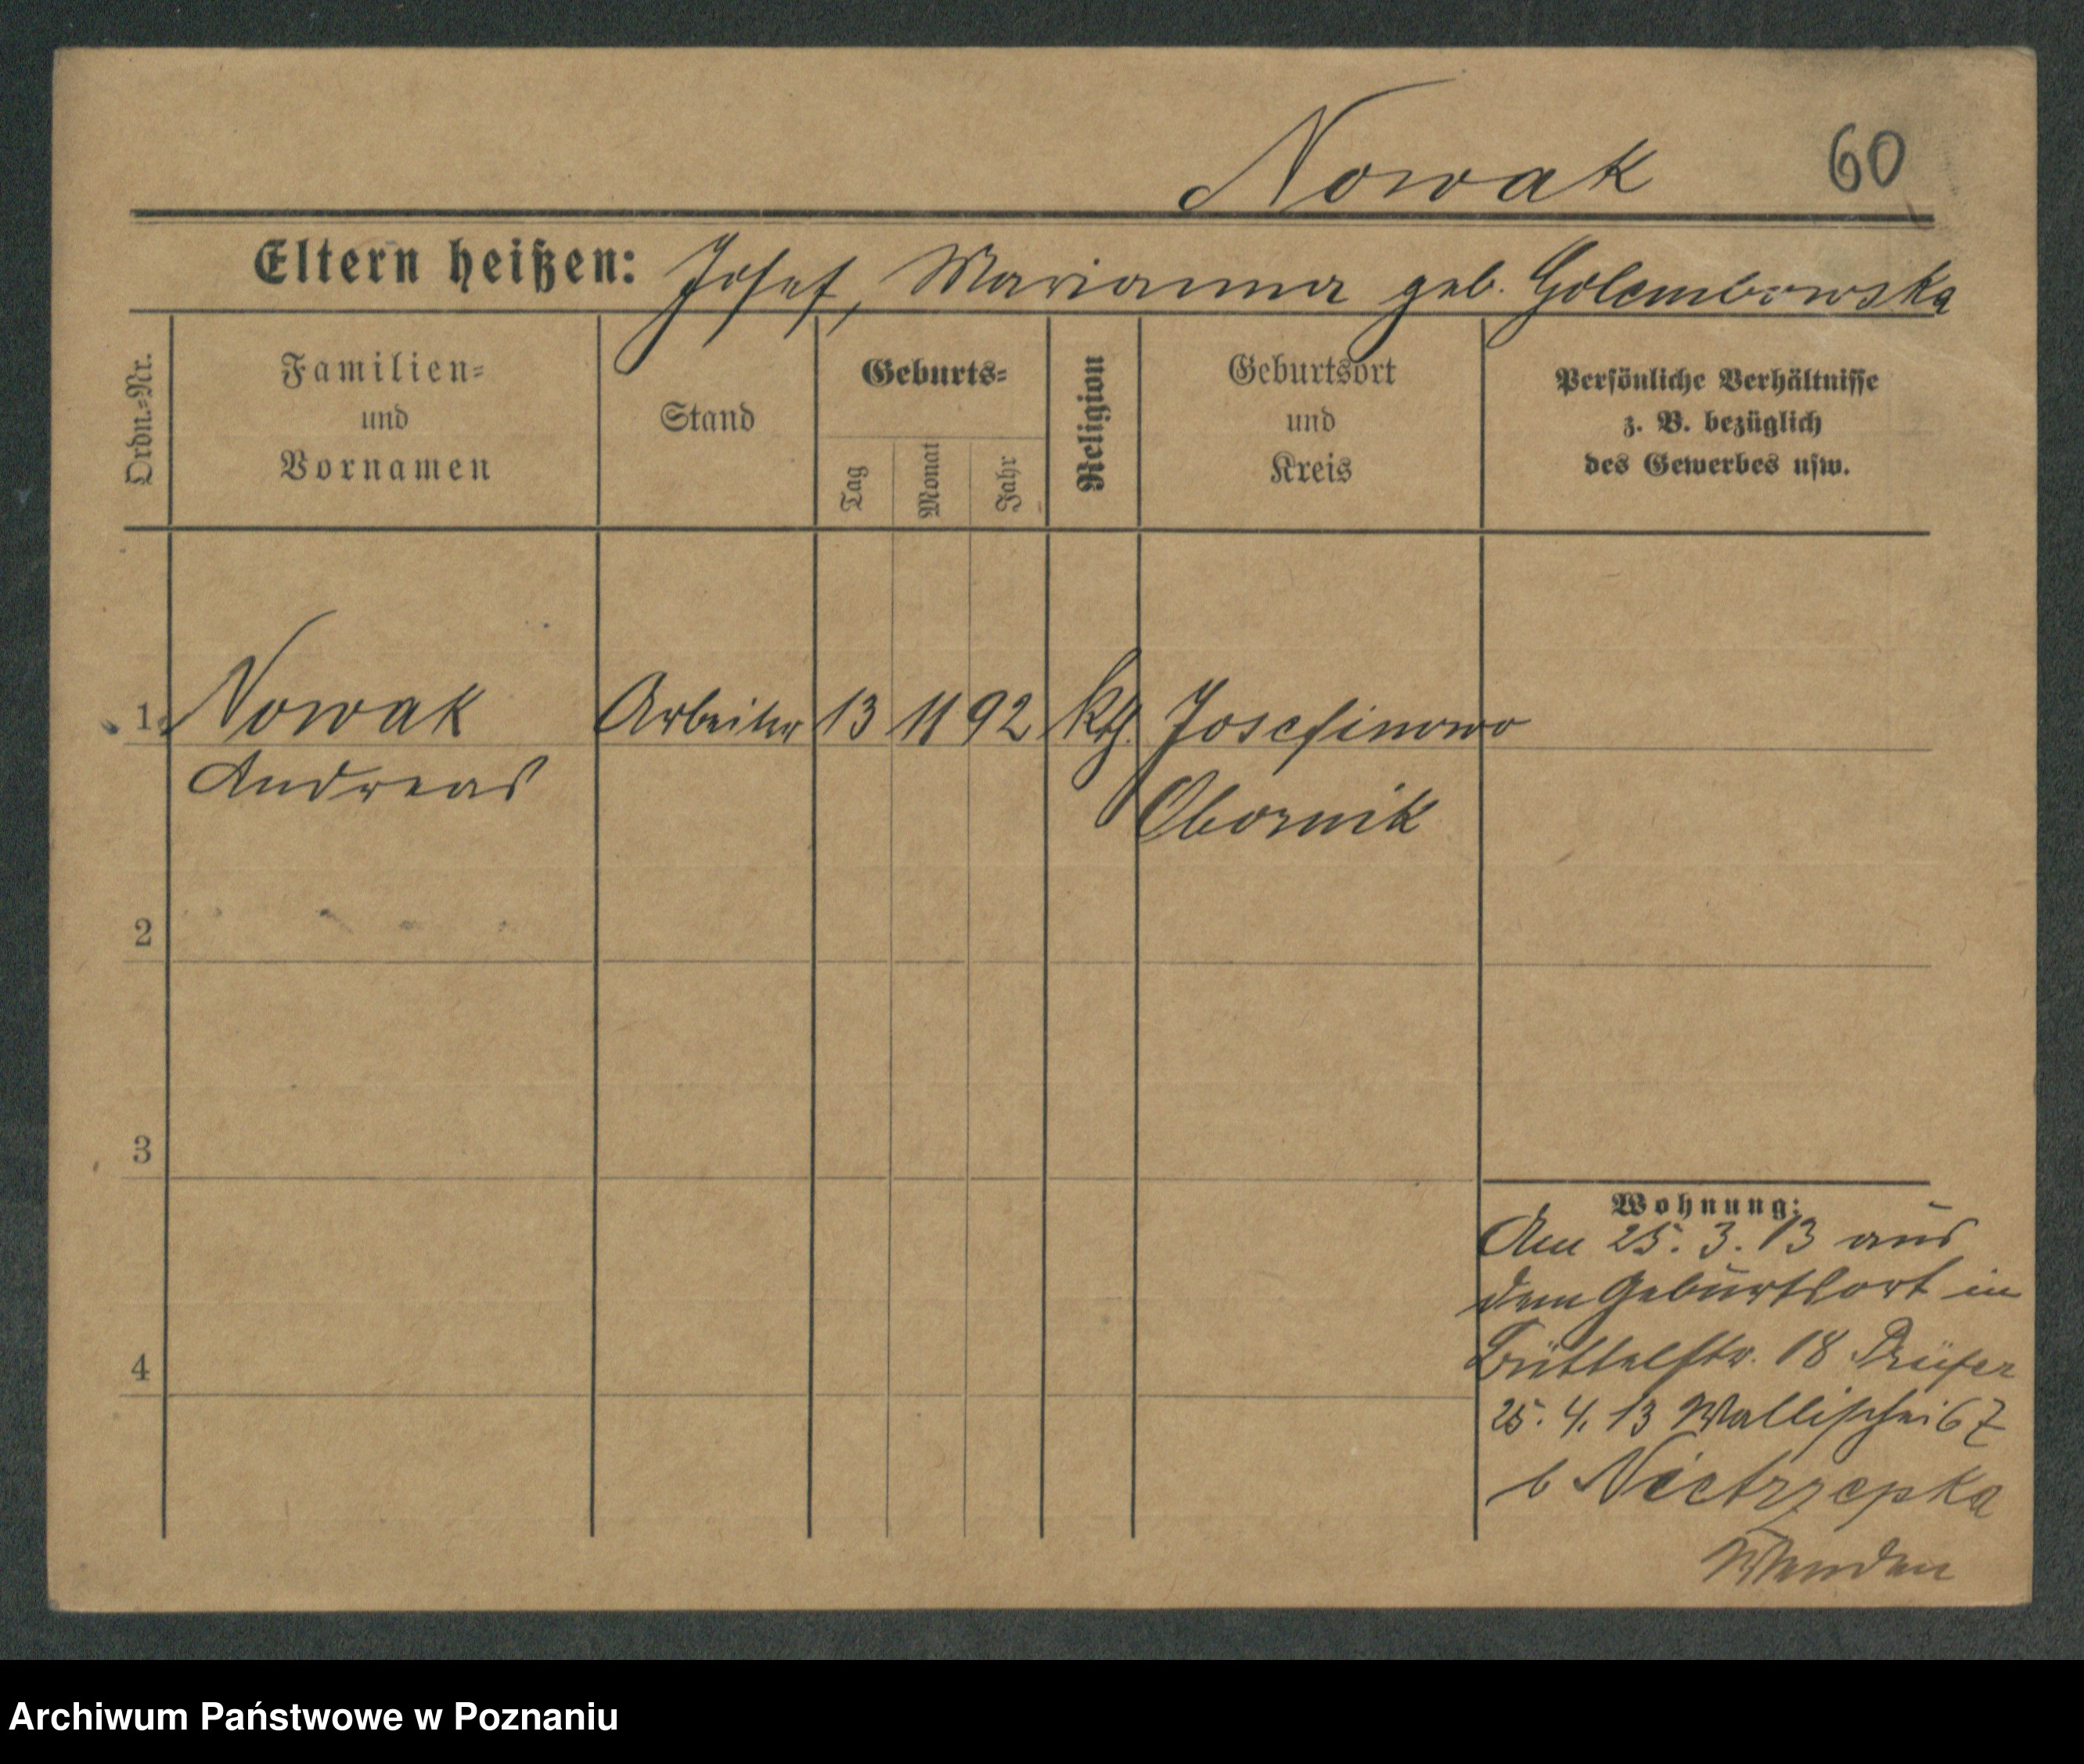 Nowak 60
Eltern heißen: Josef, Marianna geb. Golembowska
Ordn.=Nr.
Familien=
und
Vornamen
Stand
Geburts=
Tag
Monat
Jahr
Religion
Geburtsort
und
Kreis
Persönliche Verhältnisse
z. B. bezüglich
des Gewerbes usw.
1 Nowak Arbeiter 13 11 92 kth. Josefinowo
Andreas Obornik
2
3
4
Wohnung:
Am 25. 3. 13 aus
dem Geburtsort in
Büttelstr. 18 Prüfer
25. 4. 13 Wallischei 67
b Nietrzepka
Wenden
Archiwum Państwowe w Poznaniu